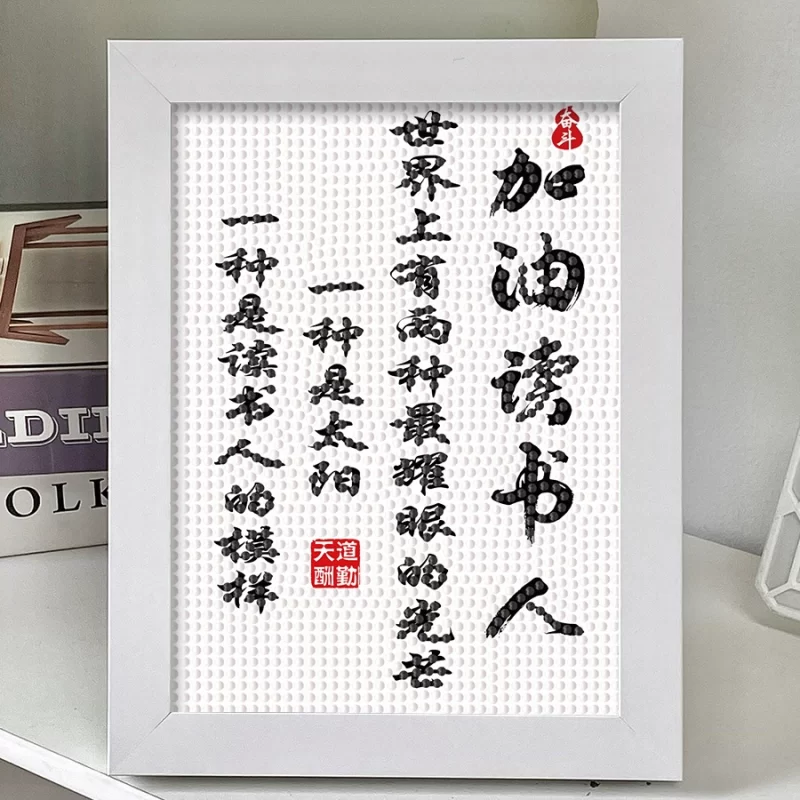 奋斗
加油读书人
世界上有两种最耀眼的光芒
一种是太阳
一种是读书人的模样
天道酬勤
OLK